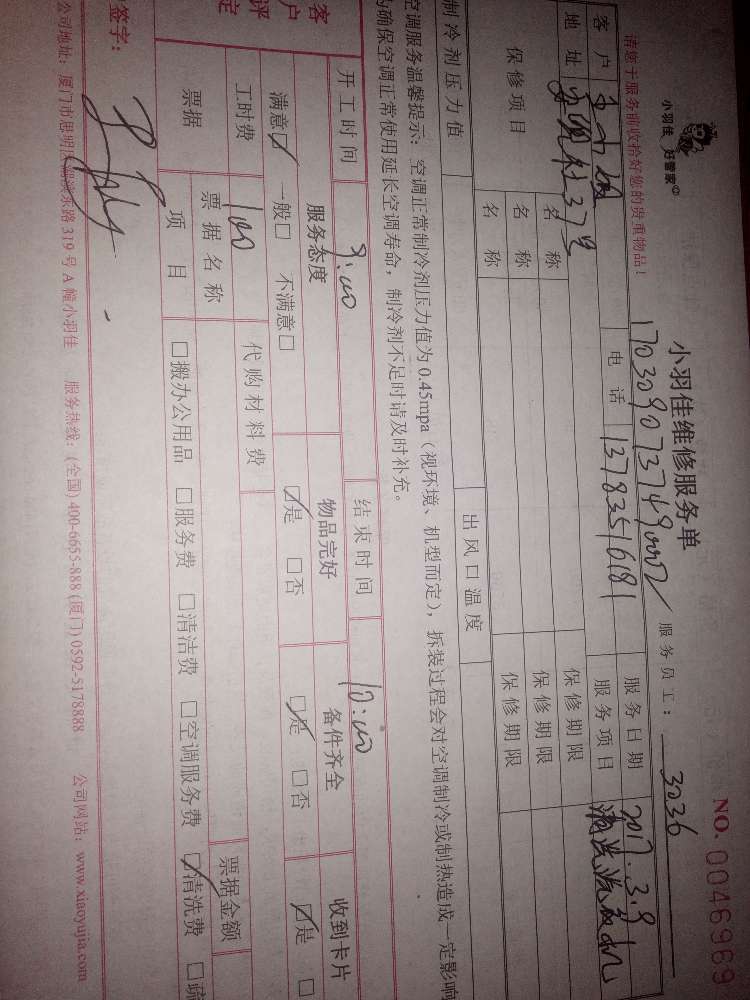 NO. 0046969
小羽佳 好管家
小羽佳维修服务单
请您于服务前收拾好您的贵重物品！
1703090737490002
服务员工： 3036
客户
电话 13783516181
服务日期 2017.3.9
地址 37号
服务项目 清洗
保修项目
名称
保修期限
名称
保修期限
名称
保修期限
制冷剂压力值
出风口温度
空调服务温馨提示：空调正常制冷剂压力值为0.45mpa（视环境、机型而定），拆装过程会对空调制冷或制热造成一定影响
为确保空调正常使用延长空调寿命，制冷剂不足时请及时补充。
开工时间 9:00 结束时间 10:00
客户评定
服务态度 物品完好 备件齐全 收到卡片
满意☑ 一般□ 不满意□ ☑是 □否 ☑是 □否 ☑是 □
工时费 100 代购材料费
票据 票据名称 票据金额
项目 □搬办公用品 □服务费 □清洁费 □空调服务费 ☑清洗费 □疏
签字：
公司地址：厦门市思明区湖滨东路319号A幢小羽佳 服务热线：(全国) 400-6655-888 (厦门) 0592-5178888 公司网站：www.xiaoyujia.com